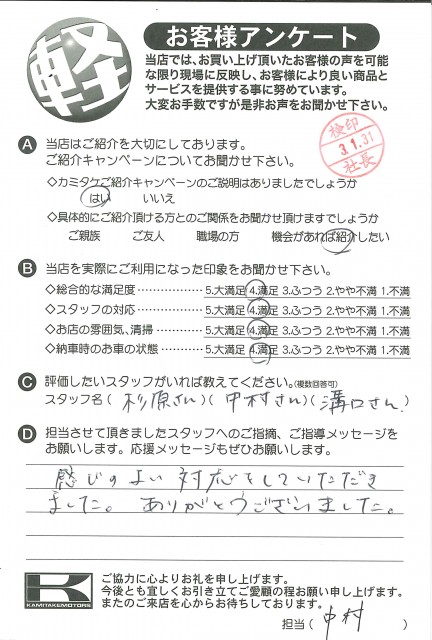 軽
お客様アンケート
当店では、お買い上げ頂いたお客様の声を可能
な限り現場に反映し、お客様により良い商品と
サービスを提供する事に努めています。
大変お手数ですが是非お声をお聞かせ下さい。
検印
3.1.31
社長
A 当店はご紹介を大切にしております。
ご紹介キャンペーンについてお聞かせ下さい。
◇カミタケご紹介キャンペーンのご説明はありましたでしょうか
はい いいえ
◇具体的にご紹介頂ける方とのご関係をお聞かせ頂けますでしょうか
ご親族 ご友人 職場の方 機会があれば紹介したい
B 当店を実際にご利用になった印象をお聞かせ下さい。
◇総合的な満足度……………5.大満足 4.満足 3.ふつう 2.やや不満 1.不満
◇スタッフの対応……………5.大満足 4.満足 3.ふつう 2.やや不満 1.不満
◇お店の雰囲気、清掃………5.大満足 4.満足 3.ふつう 2.やや不満 1.不満
◇納車時のお車の状態………5.大満足 4.満足 3.ふつう 2.やや不満 1.不満
C 評価したいスタッフがいれば教えてください。(複数回答可)
スタッフ名(杉原さん)(中村さん)(溝口さん)
D 担当させて頂きましたスタッフへのご指摘、ご指導メッセージを
お願いします。応援メッセージもぜひお願いします。
感じのよい対応をしていただき
ました。ありがとうございました。
K
KAMITAKEMOTORS
ご協力に心よりお礼を申し上げます。
今後とも宜しくお引き立てご愛顧の程お願い申し上げます。
またのご来店を心からお待ちしております。
担当(中村)